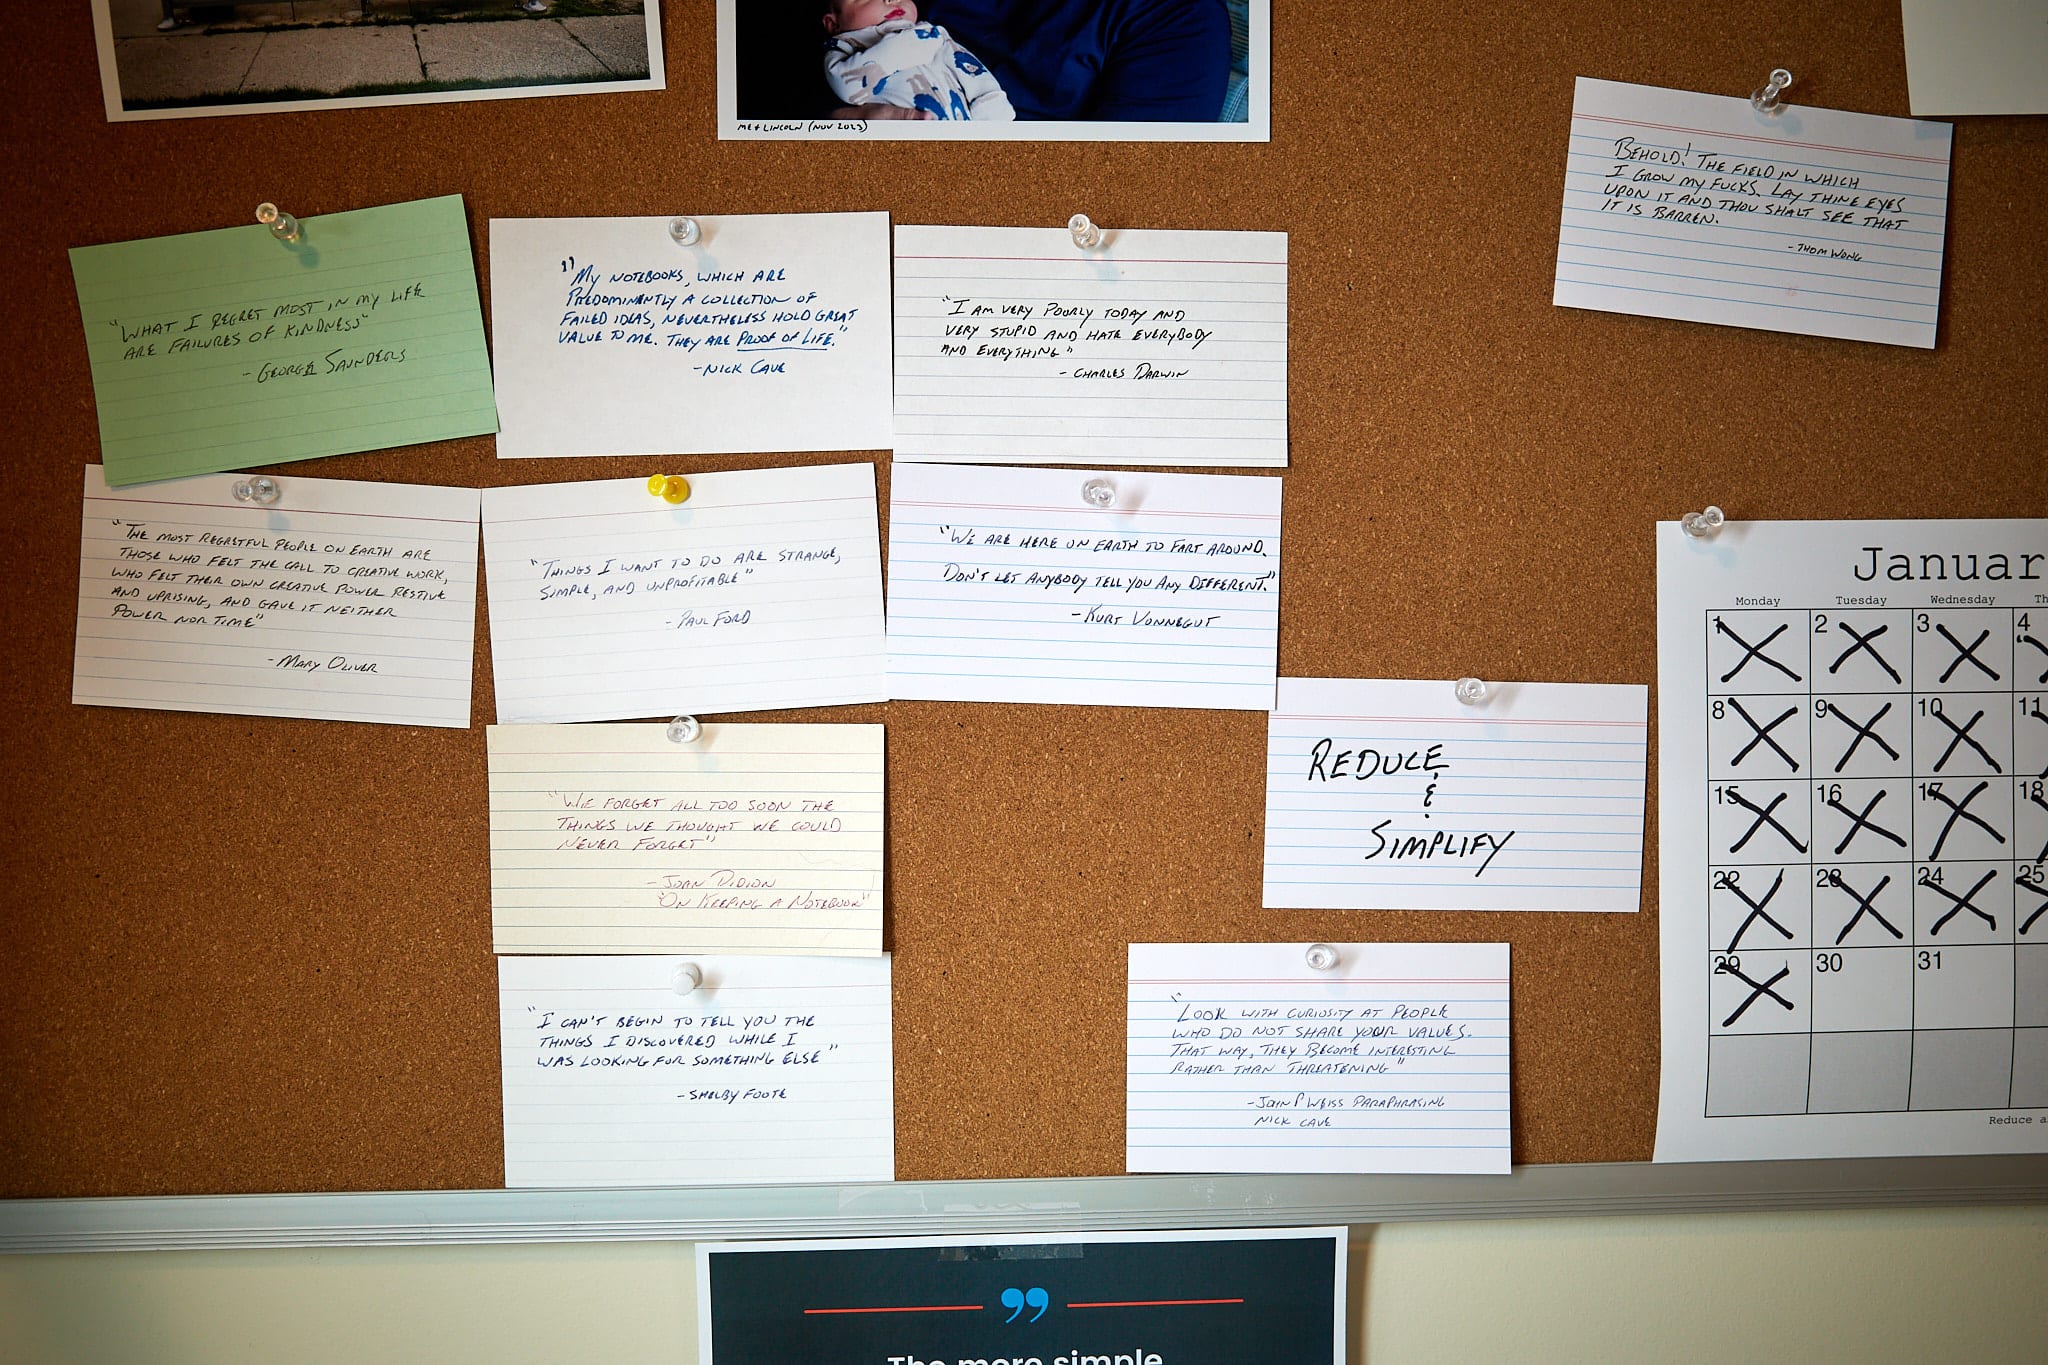 ME & LINCOLN (NOV 2023)
BEHOLD! THE FIELD IN WHICH
I GROW MY FUCKS. LAY THINE EYES
UPON IT AND THOU SHALT SEE THAT
IT IS BARREN.
- THOM WONG
"WHAT I REGRET MOST IN MY LIFE
ARE FAILURES OF KINDNESS"
- GEORGE SAUNDERS
"MY NOTEBOOKS, WHICH ARE
PREDOMINENTLY A COLLECTION OF
FAILED IDEAS, NEVERTHELESS HOLD GREAT
VALUE TO ME. THEY ARE PROOF OF LIFE."
- NICK CAVE
"I AM VERY POORLY TODAY AND
VERY STUPID AND HATE EVERYBODY
AND EVERYTHING"
- CHARLES DARWIN
"THE MOST REGRETFUL PEOPLE ON EARTH ARE
THOSE WHO FELT THE CALL TO CREATIVE WORK,
WHO FELT THEIR OWN CREATIVE POWER RESTIVE
AND UPRISING, AND GAVE IT NEITHER
POWER NOR TIME"
- MARY OLIVER
"THINGS I WANT TO DO ARE STRANGE,
SIMPLE, AND UNPROFITABLE"
- PAUL FORD
"WE ARE HERE ON EARTH TO FART AROUND.
DON'T LET ANYBODY TELL YOU ANY DIFFERENT."
- KURT VONNEGUT
"WE FORGET ALL TOO SOON THE
THINGS WE THOUGHT WE COULD
NEVER FORGET"
- JOAN DIDION
"ON KEEPING A NOTEBOOK"
REDUCE
&
SIMPLIFY
"I CAN'T BEGIN TO TELL YOU THE
THINGS I DISCOVERED WHILE I
WAS LOOKING FOR SOMETHING ELSE"
- SHELBY FOOTE
"LOOK WITH CURIOSITY AT PEOPLE
WHO DO NOT SHARE YOUR VALUES.
THAT WAY, THEY BECOME INTERESTING
RATHER THAN THREATENING"
- JOHN P WEISS PARAPHRASING
NICK CAVE
Januar
Monday Tuesday Wednesday Th
1 2 3 4
8 9 10 11
15 16 17 18
22 23 24 25
29 30 31
Reduce a
The more simple